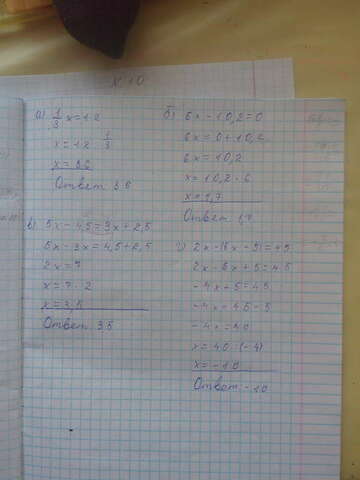 а) 1/3 x = 12
x = 12 1/3
x = 36
Ответ 36
б) 6x - 10,2 = 0
6x = 0 + 10,2
6x = 10,2
x = 10,2 : 6
x = 1,7
Ответ 1,7
в) 5x - 4,5 = 3x + 2,5
5x - 3x = 4,5 + 2,5
2x = 7
x = 7 : 2
x = 3,5
Ответ 3.5
2x - 6x + 5 = 45
-4x - 5 = 45
-4x = 45 - 5
-4x = 40
x = 40 : (-4)
x = -10
Ответ -10